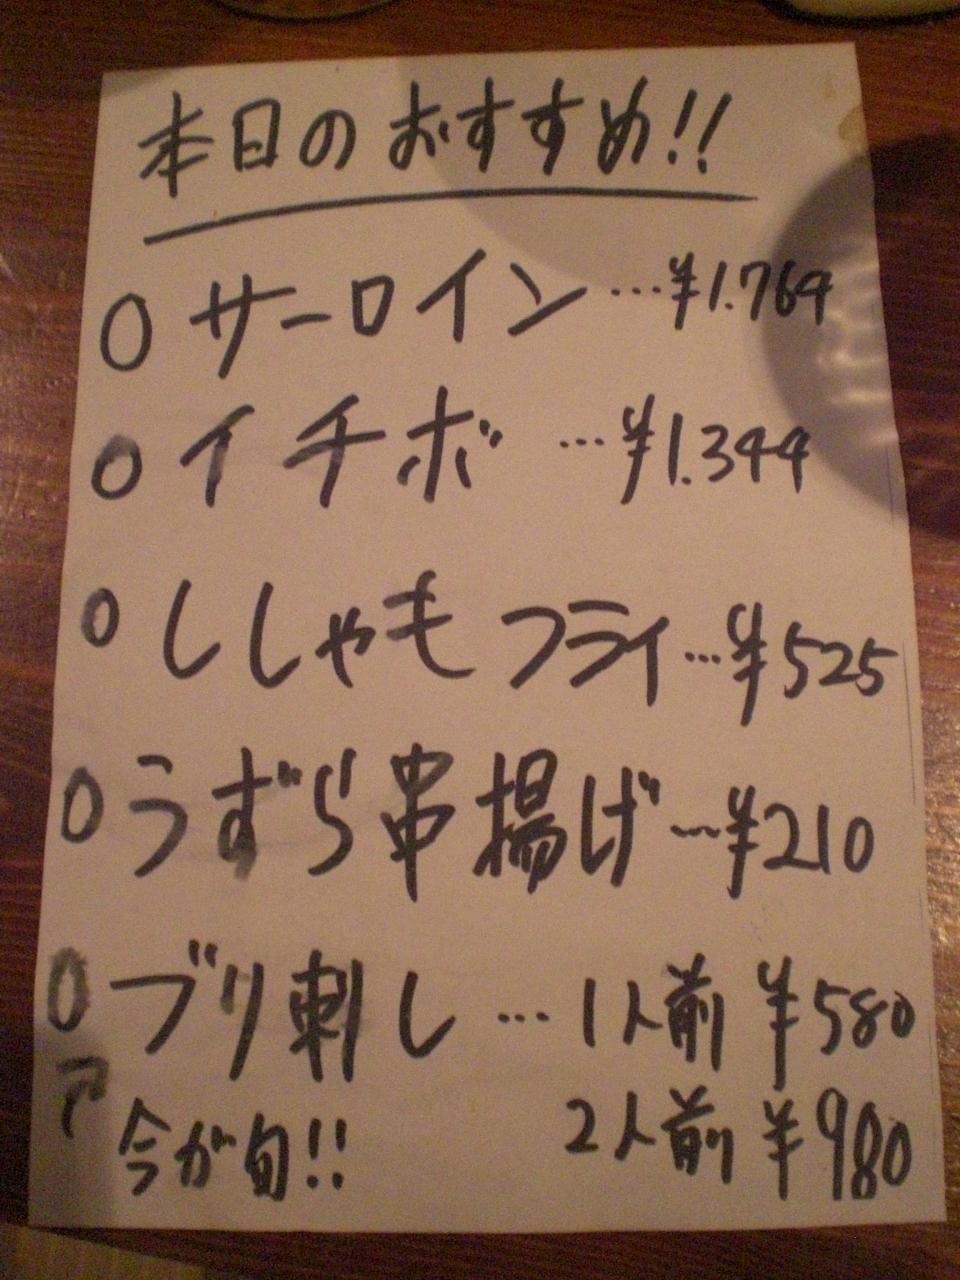 本日のおすすめ!!
○サーロイン…¥1.764
○イチボ…¥1.344
○ししゃもフライ…¥525
○うずら串揚げ…¥210
○ブリ刺し…1人前 ¥580
今が旬!! 2人前 ¥980